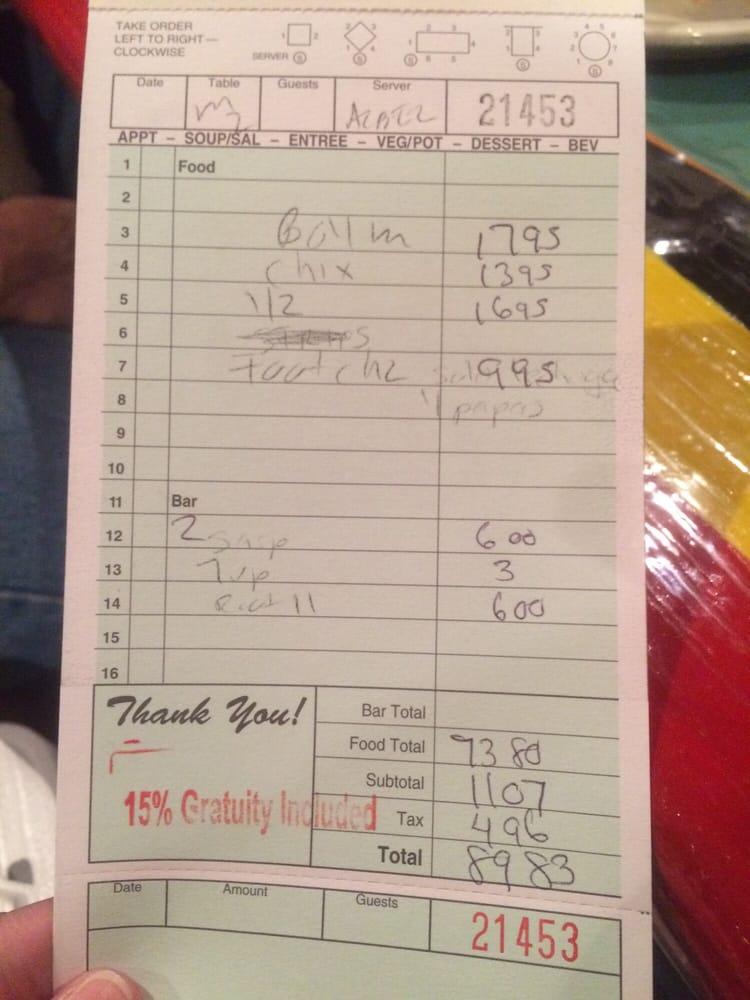 TAKE ORDER
LEFT TO RIGHT—
CLOCKWISE
SERVER S
Date Table Guests Server
21453
APPT – SOUP/SAL – ENTREE – VEG/POT – DESSERT – BEV
1 Food
2
3 1795
4 chix 1395
5 1/2 1695
6
7 995
8 papas
9
10
11 Bar
12 2 600
13 7up 3
14 600
15
16
Thank You!
Bar Total
Food Total 7380
Subtotal 1107
15% Gratuity Included
Tax 496
Total 8983
Date Amount Guests
21453